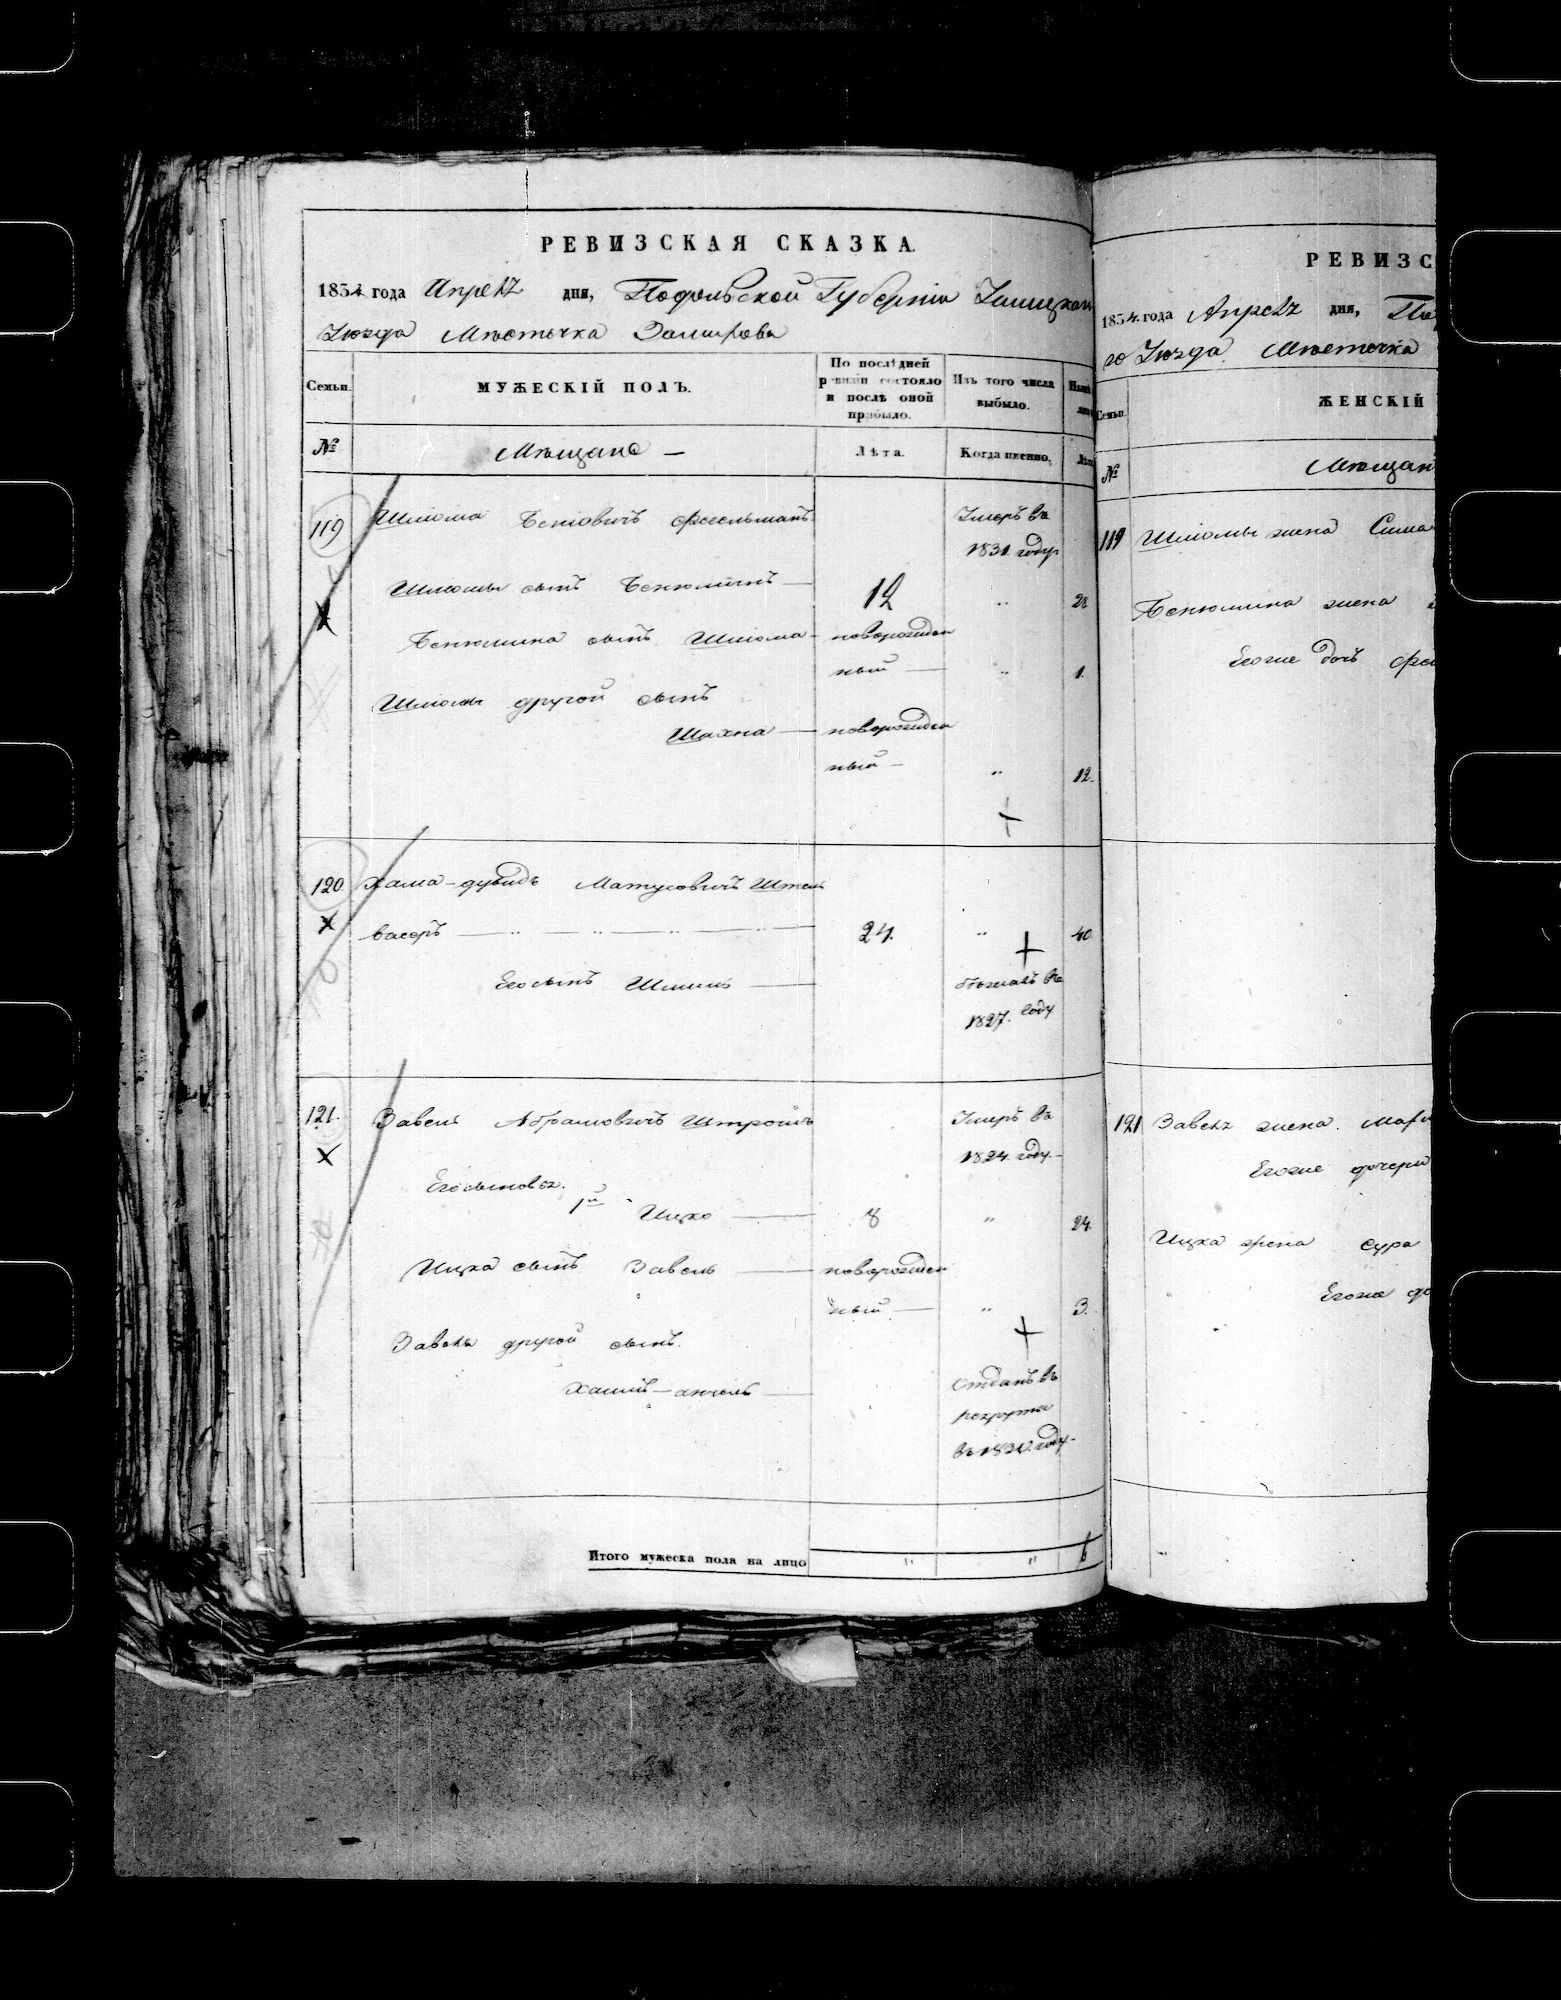 РЕВИЗСКАЯ СКАЗКА.
1834 года Апреля дня, Подольской Губерніи Ушицкаго
Уѣзда Мѣстечка Замихова
Семьи.
МУЖЕСКІЙ ПОЛЪ.
По послѣдней ревизіи состояло и послѣ оной прибыло.
Изъ того числа выбыло.
№
Мѣщане —
Лѣта.
Когда именно,
119
Шліома Беніовичъ
Умеръ въ
1831 году
Шліомы сынъ Бенюминъ —
12
"
Бенюмина сынъ Шліома —
новорожден
ный —
"
1.
Шліомы другой сынъ
Шахна —
новорожден
ный —
"
12.
120
дувидъ Матусовичъ Штель
васеръ — " — " — " — " —
24.
"
40
Его сынъ —
бѣжалъ въ
1827. году
121.
Завель Абрамовичъ Штроимъ
Умеръ въ
1824. году. —
Его сыновья.
1й Ицко —
8
"
24.
Ицка сынъ Завель —
новорожден
ный —
"
3.
Завеля другой сынъ.
Хаимъ —
Отданъ въ
рекруты
въ году. —
Итого мужеска пола на лицо
"
"
6
РЕВИЗС
1834. года Апреля дня, По
го Уѣзда. Мѣстечка
Семьи.
ЖЕНСКІЙ
№
Мѣщан
119 Шліомы жена Сима
Бенюмина жена
Егоже дочь
121 Завеля жена.
Егоже дочери
Ицка жена Сура
Егоже до